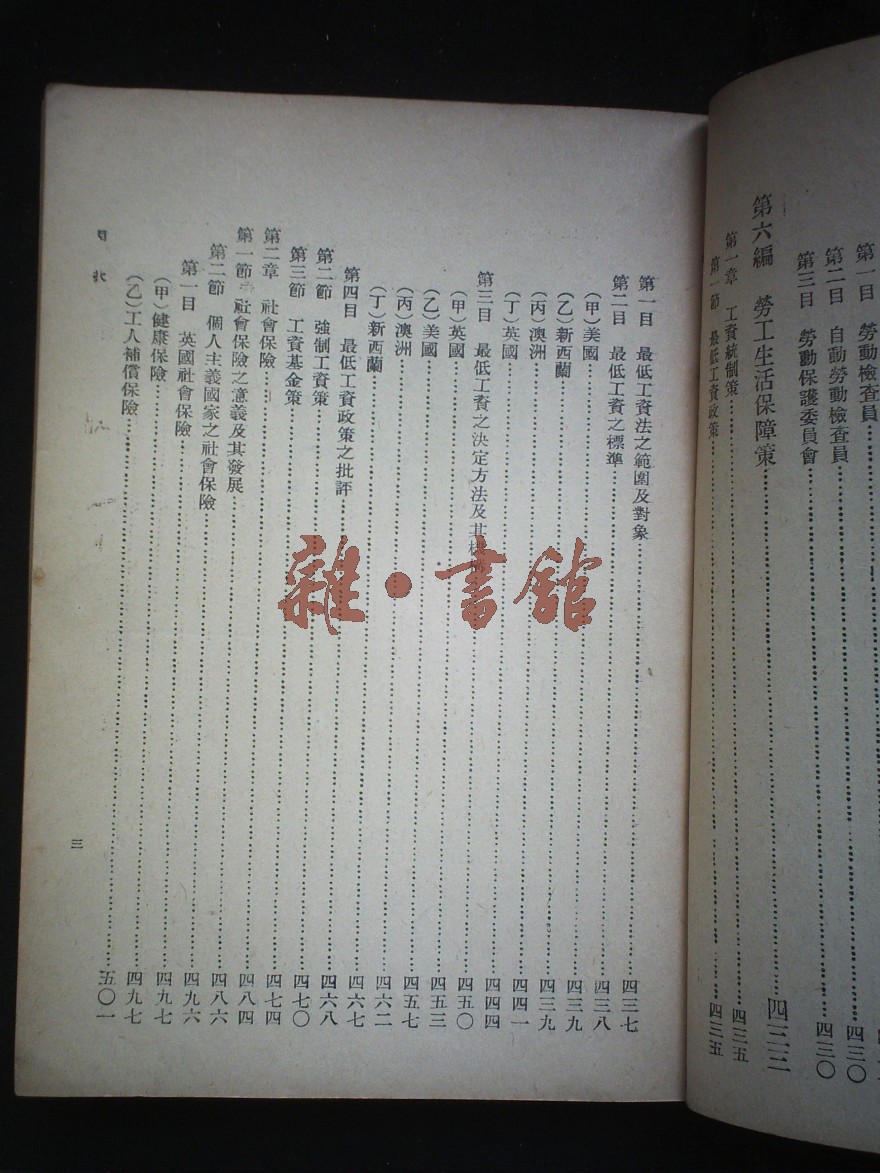 第一目 勞動檢查員
第二目 自動勞動檢查員……四三〇
第三目 勞動保護委員會……四三〇
第六編 勞工生活保障策……四三三
第一章 工資統制策……四三五
第一節 最低工資政策……四三五
第一目 最低工資法之範圍及對象……四三七
第二目 最低工資之標準……四三八
(甲)美國……四三九
(乙)新西蘭……四三九
(丙)澳洲……四四一
(丁)英國……四四四
第三目 最低工資之決定方法及其機構……四五〇
(甲)英國……四五三
(乙)美國……四五七
(丙)澳洲……四六二
(丁)新西蘭……四六七
第四目 最低工資政策之批評……四六八
第二節 強制工資策……四七〇
第三節 工資基金策……四七四
第二章 社會保險……四八四
第一節 社會保險之意義及其發展……四八六
第二節 個人主義國家之社會保險……四九六
第一目 英國社會保險……四九七
(甲)健康保險……四九七
(乙)工人補償保險……五〇一
三
雜·書館